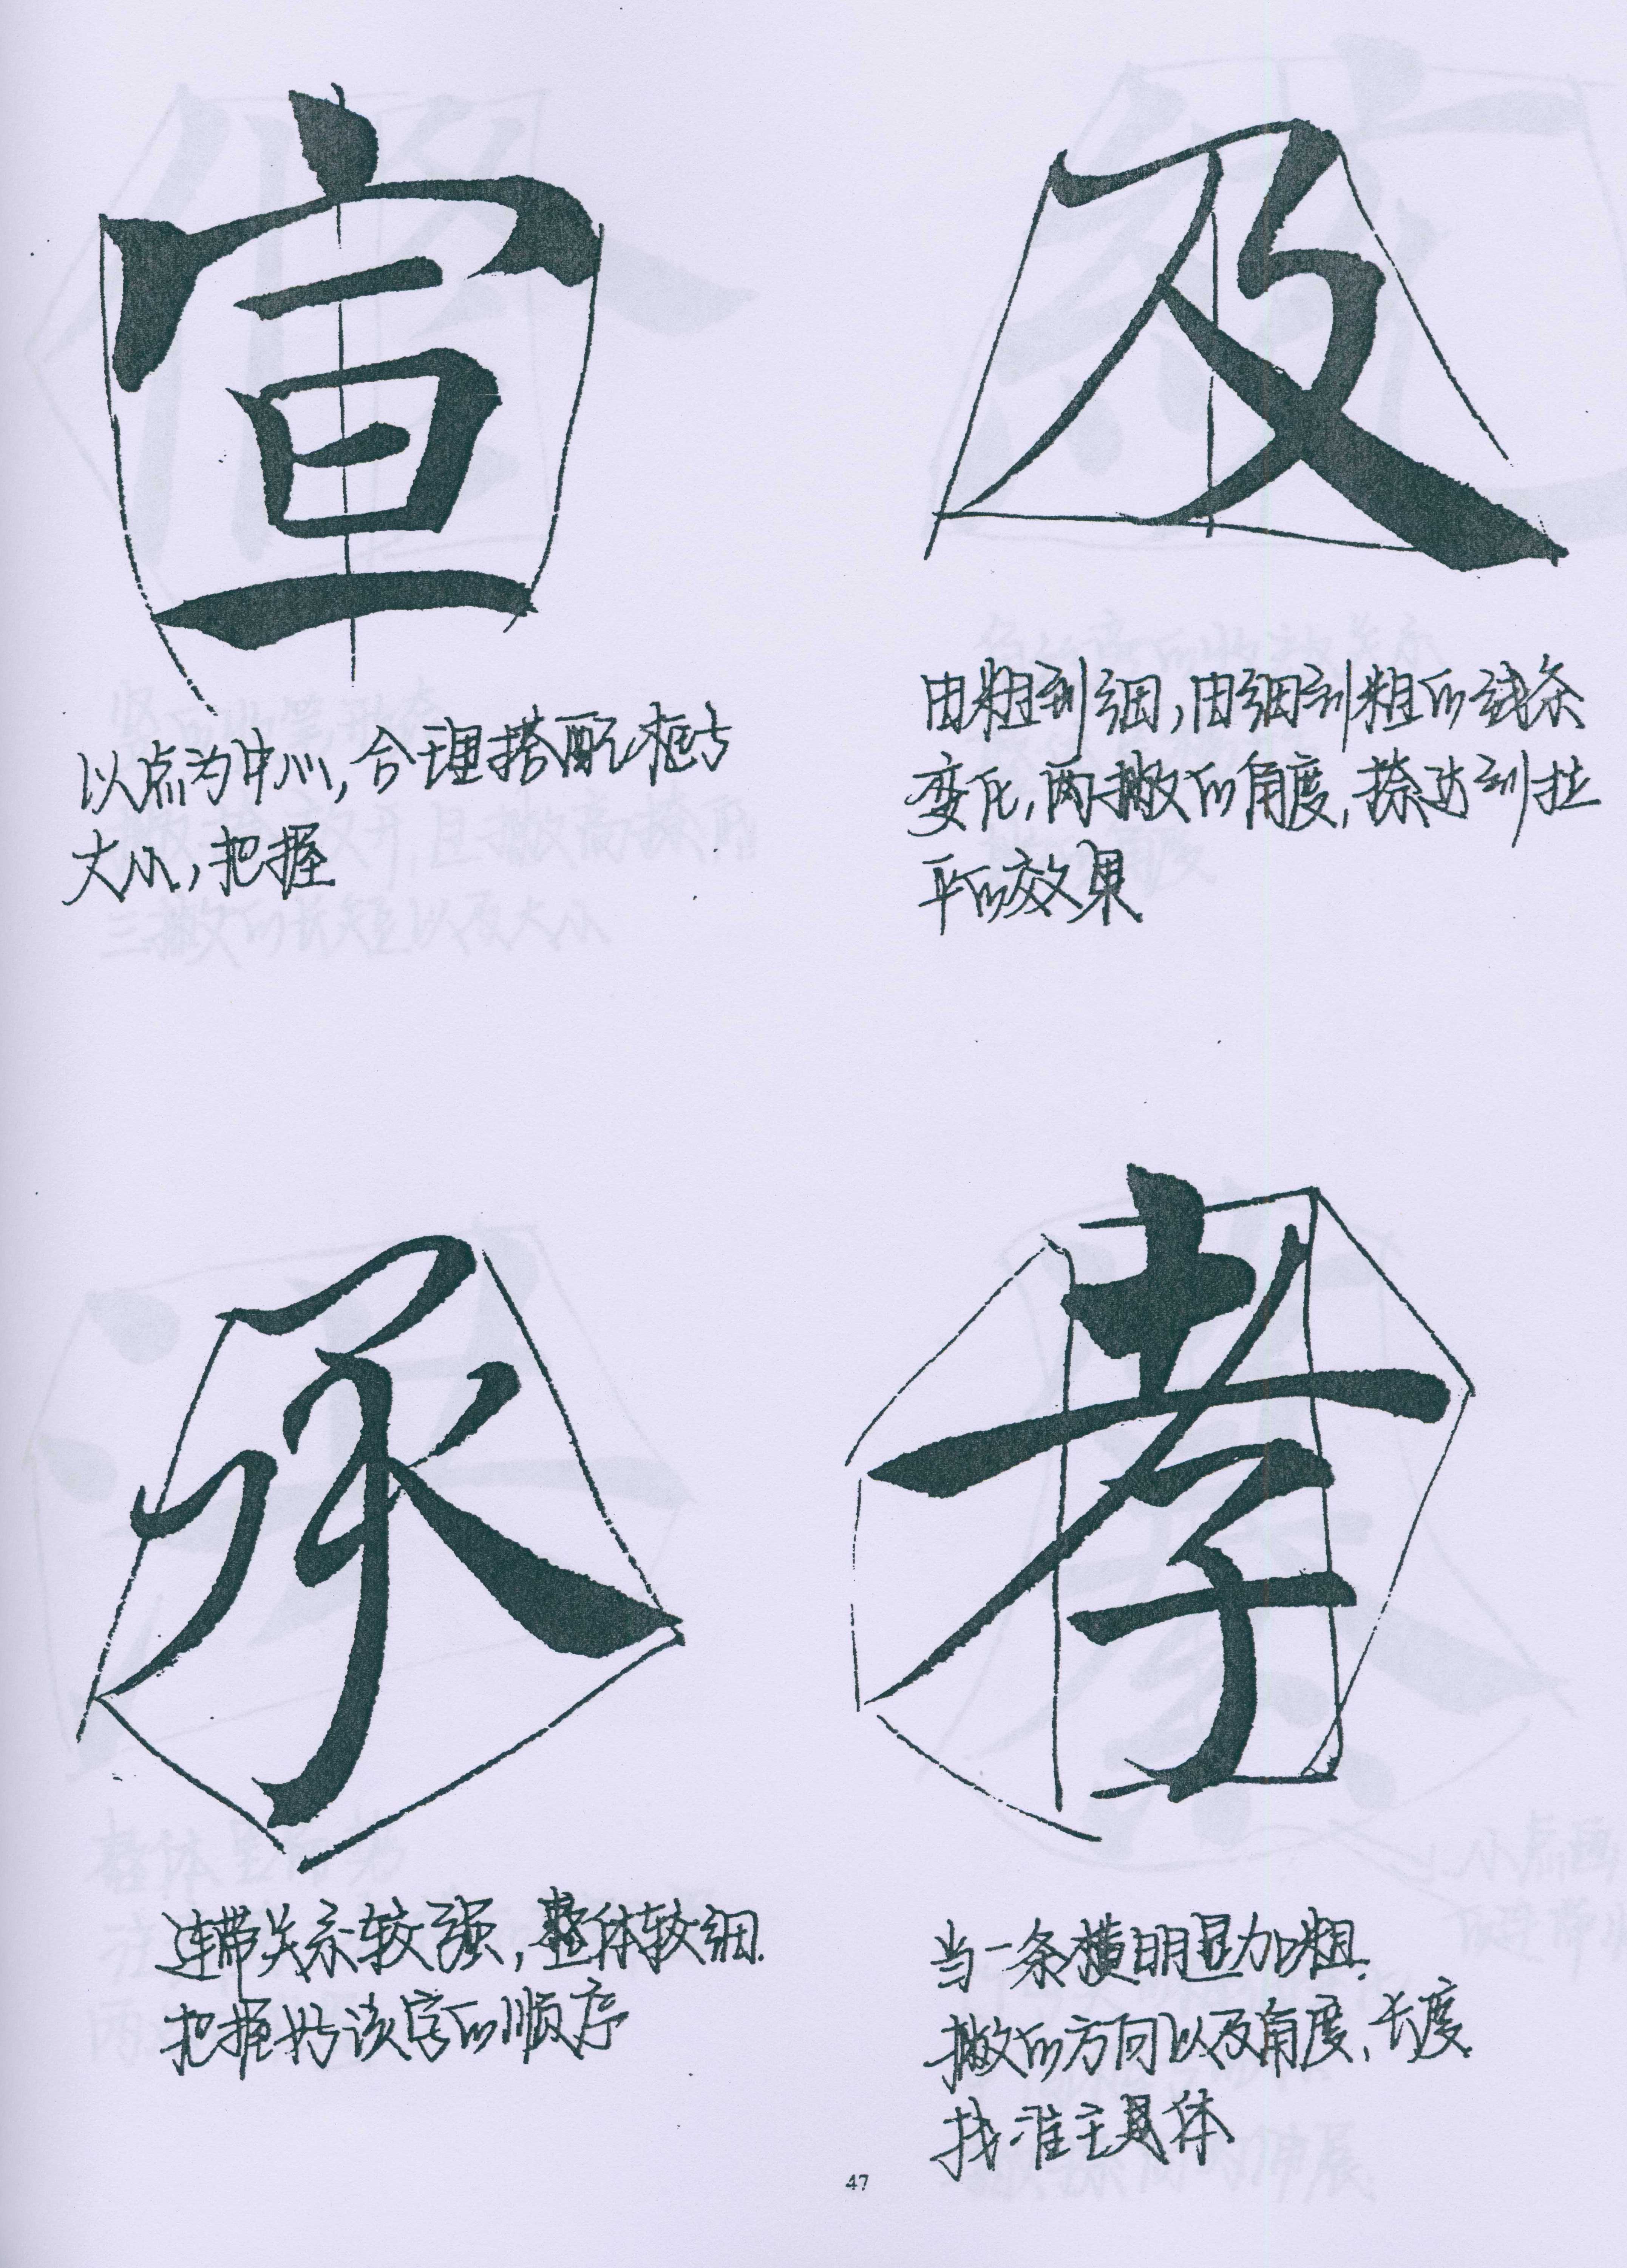 宣
以点为中心，合理搭配框与
大小，把握
及
由粗到细，由细到粗的线条
变化，两撇的角度，捺达到拉
平的效果
承
连带关系较强，整体较细.
把握好该字的顺序
孝
当一条横明显加粗.
撇的方向以及角度、长度
找准主具体
47